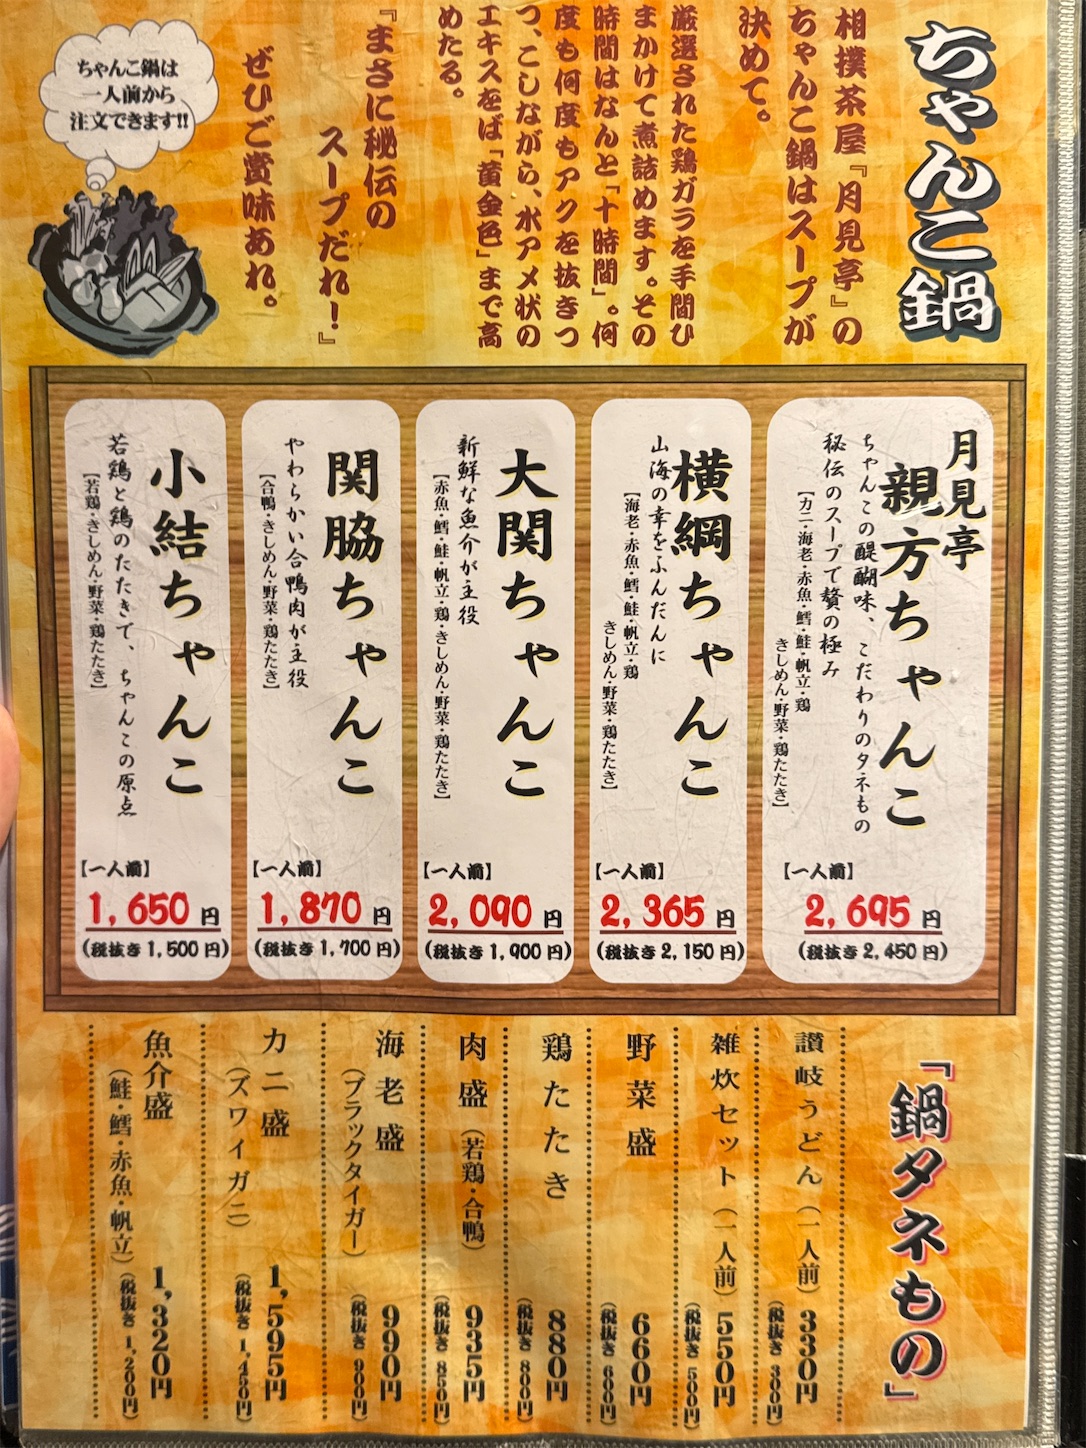 ちゃんこ鍋
相撲茶屋『月見亭』の
ちゃんこ鍋はスープが
決めて。
厳選された鶏ガラを手間ひ
まかけて煮詰めます。その
時間はなんと「十時間」。何
度も何度もアクを抜きつ
つ、こしながら、水アメ状の
エキスをば「黄金色」まで高
めたる。
『まさに秘伝の
スープだれ!』
ぜひご賞味あれ。
ちゃんこ鍋は
一人前から
注文できます!!
月見亭
親方ちゃんこ
ちゃんこの醍醐味、こだわりのタネもの
秘伝のスープで贅の極み
【カニ・海老・赤魚・鱈・鮭・帆立・鶏
きしめん・野菜・鶏たたき】
【一人前】
2,695円
(税抜き2,450円)
横綱ちゃんこ
山海の幸をふんだんに
【海老・赤魚・鱈・鮭・帆立・鶏
きしめん・野菜・鶏たたき】
【一人前】
2,365円
(税抜き2,150円)
大関ちゃんこ
新鮮な魚介が主役
【赤魚・鱈・鮭・帆立・鶏・きしめん・野菜・鶏たたき】
【一人前】
2,090円
(税抜き1,900円)
関脇ちゃんこ
やわらかい合鴨肉が主役
【合鴨・きしめん・野菜・鶏たたき】
【一人前】
1,870円
(税抜き1,700円)
小結ちゃんこ
若鶏と鶏のたたきで、ちゃんこの原点
【若鶏・きしめん・野菜・鶏たたき】
【一人前】
1,650円
(税抜き1,500円)
『鍋タネもの』
讃岐うどん(一人前)330円
(税抜き300円)
雑炊セット(一人前)550円
(税抜き500円)
野菜盛 660円
(税抜き600円)
鶏たたき 880円
(税抜き800円)
肉盛(若鶏・合鴨)935円
(税抜き850円)
海老盛 990円
(ブラックタイガー)(税抜き900円)
カニ盛 1,595円
(ズワイガニ)(税抜き1,450円)
魚介盛 1,320円
(鮭・鱈・赤魚・帆立)(税抜き1,200円)